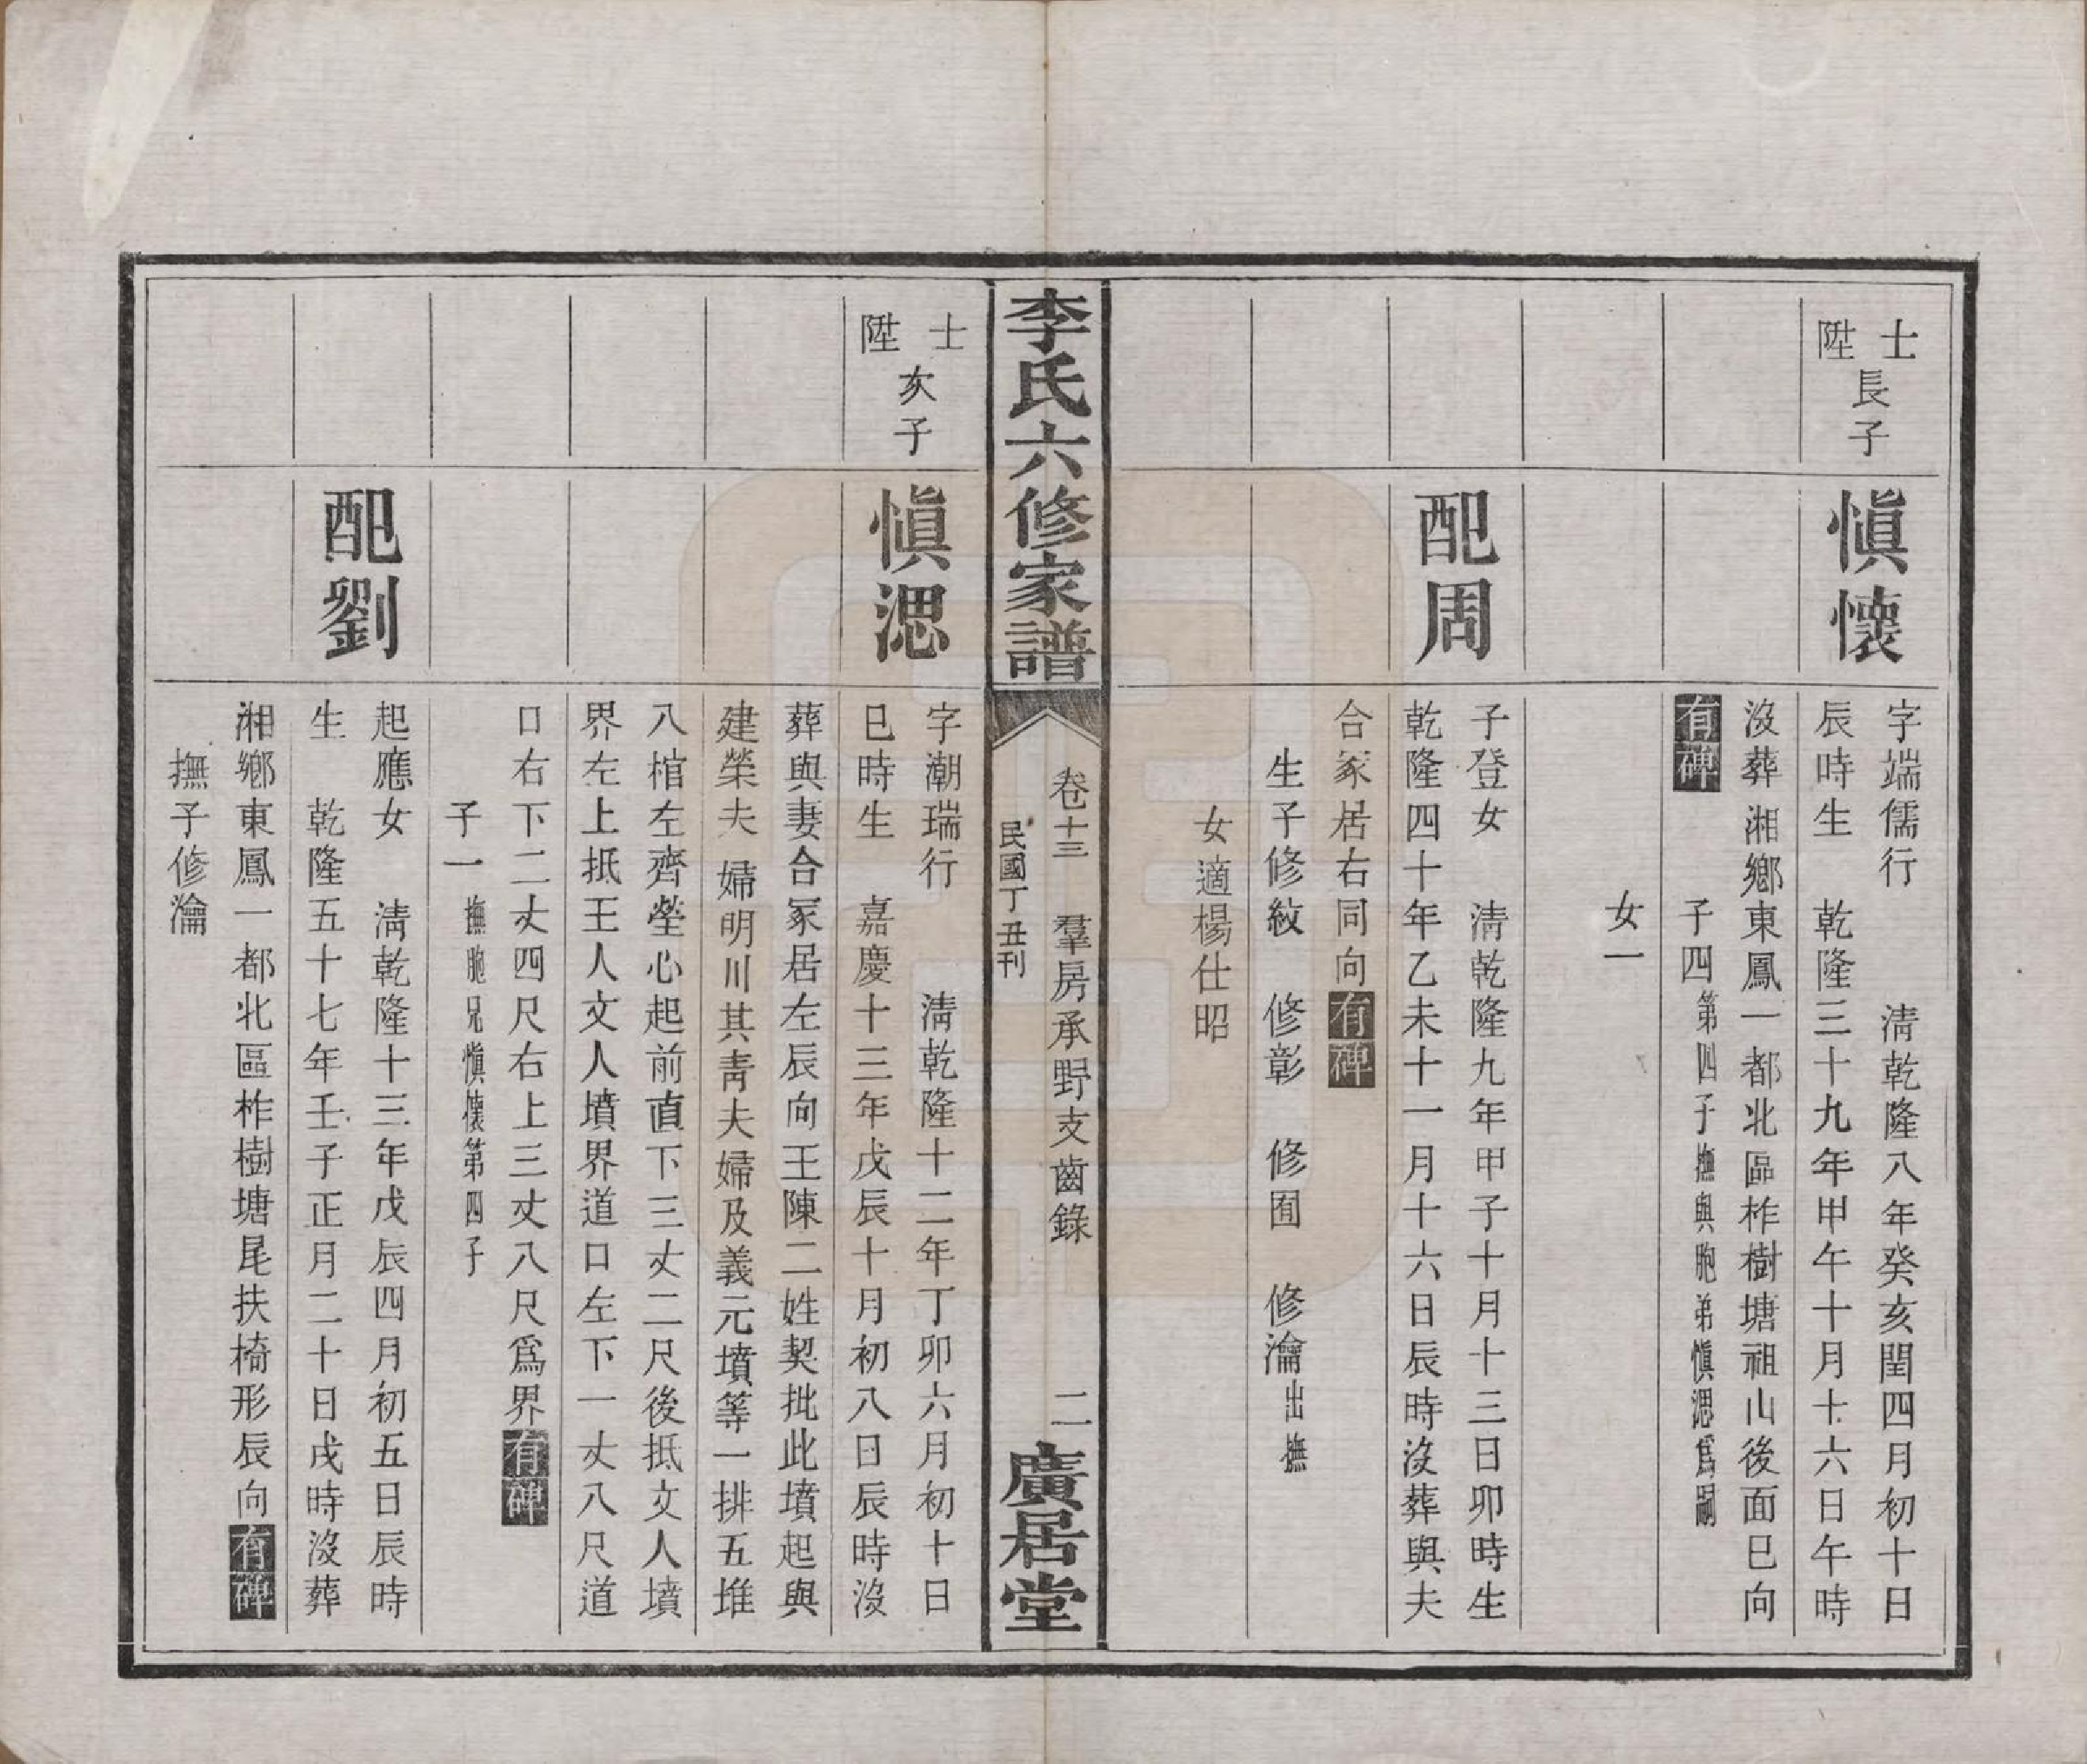 士陞長子
慎懷
字端儒行 清乾隆八年癸亥閏四月初十日
辰時生 乾隆三十九年甲午十月十六日午時
沒葬湘鄉東鳳一都北區柞樹塘祖山後面巳向
有碑 子四第四子撫與胞弟慎濍爲嗣
女一
配周
子登女 清乾隆九年甲子十月十三日卯時生
乾隆四十年乙未十一月十六日辰時沒葬與夫
合冢居右同向有碑
生子修紋 修彰 修囿 修瀹出撫
女適楊仕昭
李氏六修家譜
卷十三 羣房承野支齒錄 二
民國丁丑刊
廣居堂
士陞次子
慎濍
字潮瑞行 清乾隆十二年丁卯六月初十日
巳時生 嘉慶十三年戊辰十月初八日辰時沒
葬與妻合冢居左辰向王陳二姓契批此墳起與
建榮夫婦明川其靑夫婦及義元墳等一排五堆
八棺左齊塋心起前直下三丈二尺後抵文人墳
界左上抵王人文人墳界道口左下一丈八尺道
口右下二丈四尺右上三丈八尺爲界有碑
子一撫胞兄慎懷第四子
配劉
起應女 清乾隆十三年戊辰四月初五日辰時
生 乾隆五十七年壬子正月二十日戌時沒葬
湘鄉東鳳一都北區柞樹塘尾扶椅形辰向有碑
撫子修瀹